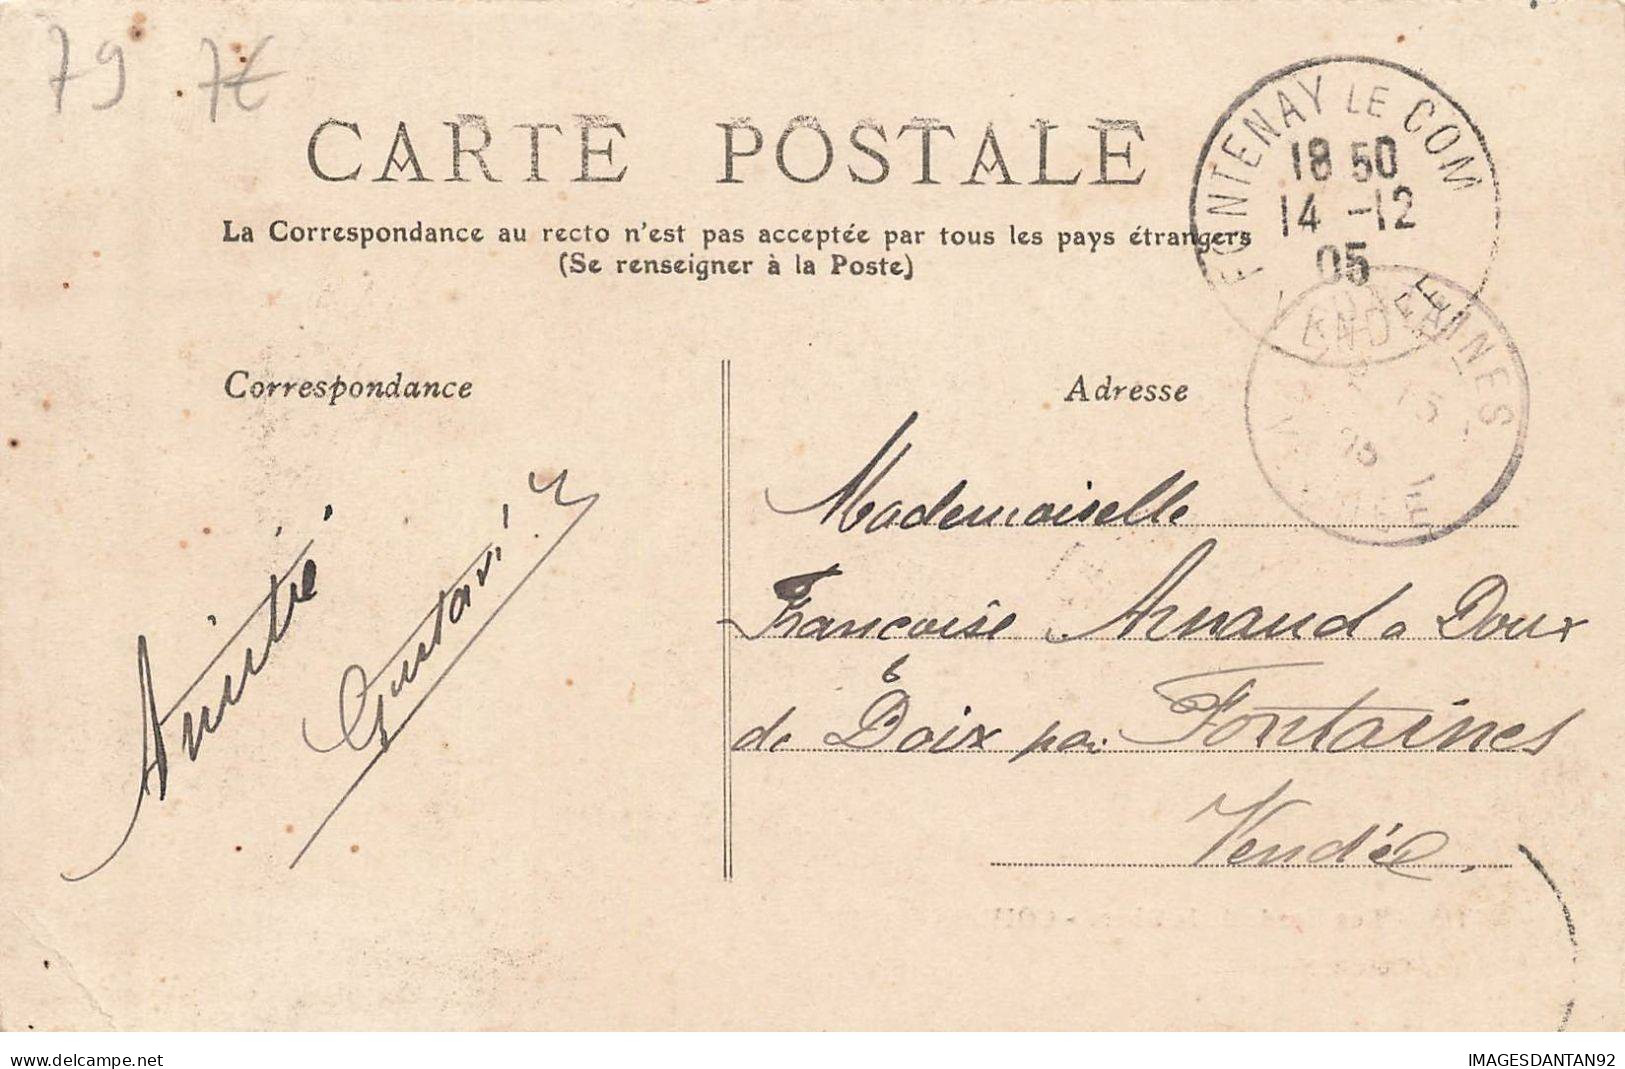 79 7€
CARTE POSTALE
La Correspondance au recto n'est pas acceptée par tous les pays étrangers
(Se renseigner à la Poste)
FONTENAY LE COM
18 50
14 -12
05
VENDÉE
FONTAINES
15
Correspondance
Adresse
Amitié
Gustave
Mademoiselle
Françoise Arnaud a Doux
de Doix par Fontaines
Vendée
delcampe.net
IMAGESDANTAN92